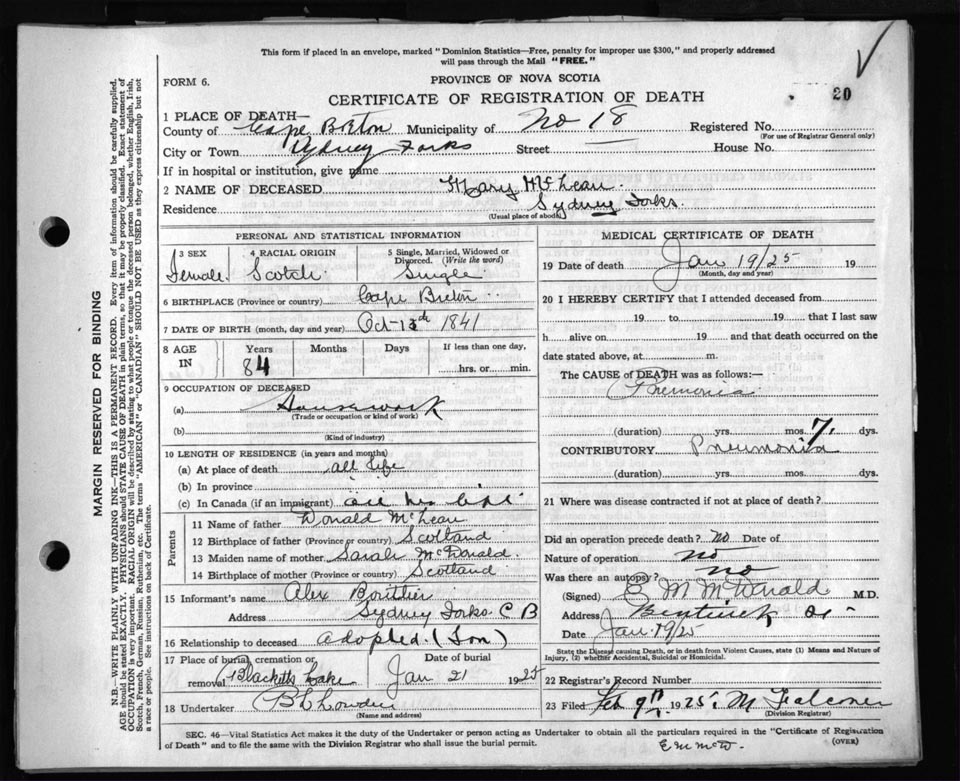 This form if placed in an envelope, marked "Dominion Statistics—Free, penalty for improper use $300," and properly addressed
will pass through the Mail "FREE."
FORM 6.
PROVINCE OF NOVA SCOTIA
20
CERTIFICATE OF REGISTRATION OF DEATH
1 PLACE OF DEATH—
County of Cape Breton Municipality of No 18 Registered No.
(For use of Registrar General only)
City or Town Sydney Forks Street — House No.
If in hospital or institution, give name
2 NAME OF DECEASED Mary McLean.
Residence Sydney Forks.
(Usual place of abode)
PERSONAL AND STATISTICAL INFORMATION
3 SEX 4 RACIAL ORIGIN 5 Single, Married, Widowed or
Divorced. (Write the word)
Female. Scotch Single
6 BIRTHPLACE (Province or country) Cape Breton
7 DATE OF BIRTH (month, day and year) Oct-13th 1841
8 AGE IN Years Months Days If less than one day,
84 hrs. or min.
9 OCCUPATION OF DECEASED
(a) Housework
(Trade or occupation or kind of work)
(b)
(Kind of industry)
10 LENGTH OF RESIDENCE (in years and months)
(a) At place of death all life
(b) In province
(c) In Canada (if an immigrant) all her life
Parents
11 Name of father Donald McLean
12 Birthplace of father (Province or country) Scotland
13 Maiden name of mother Sarah McDonald.
14 Birthplace of mother (Province or country) Scotland
15 Informant's name Alex
Address Sydney Forks C B
16 Relationship to deceased adopted. (Son)
17 Place of burial, cremation or
removal Blacketts Lake
Date of burial
Jan 21 1925
18 Undertaker
(Name and address)
MEDICAL CERTIFICATE OF DEATH
19 Date of death Jan 19/25 19
(Month, day and year)
20 I HEREBY CERTIFY that I attended deceased from
19 to 19 that I last saw
h alive on 19 and that death occurred on the
date stated above, at m.
The CAUSE of DEATH was as follows:—
(duration) yrs. mos. 7 dys.
CONTRIBUTORY Pneumonia
(duration) yrs. mos. dys.
21 Where was disease contracted if not at place of death?
Did an operation precede death? no Date of
Nature of operation no
Was there an autopsy? no
(Signed) E M McDonald M.D.
Address Bentinck St
Date Jan 19/25
State the Disease causing Death, or in death from Violent Causes, state (1) Means and Nature of
Injury, (2) whether Accidental, Suicidal or Homicidal.
22 Registrar's Record Number
23 Filed Feb 9th 1925. M Falconer
(Division Registrar)
SEC. 46—Vital Statistics Act makes it the duty of the Undertaker or person acting as Undertaker to obtain all the particulars required in the "Certificate of Registration
of Death" and to file the same with the Division Registrar who shall issue the burial permit.
(OVER)
MARGIN RESERVED FOR BINDING
N.B.—WRITE PLAINLY WITH UNFADING INK—THIS IS A PERMANENT RECORD. Every item of information should be carefully supplied.
AGE should be stated EXACTLY. PHYSICIANS should STATE CAUSE OF DEATH in plain terms, so that it may be properly classified. Exact statement of
OCCUPATION is very important. RACIAL ORIGIN will be described by stating to what people or tongue the deceased person belonged, whether English, Irish,
Scotch, French, German, Russian, Ruthenian, etc. The terms "AMERICAN" or "CANADIAN" SHOULD NOT BE USED as they express citizenship but not
a race or people. See instructions on back of Certificate.